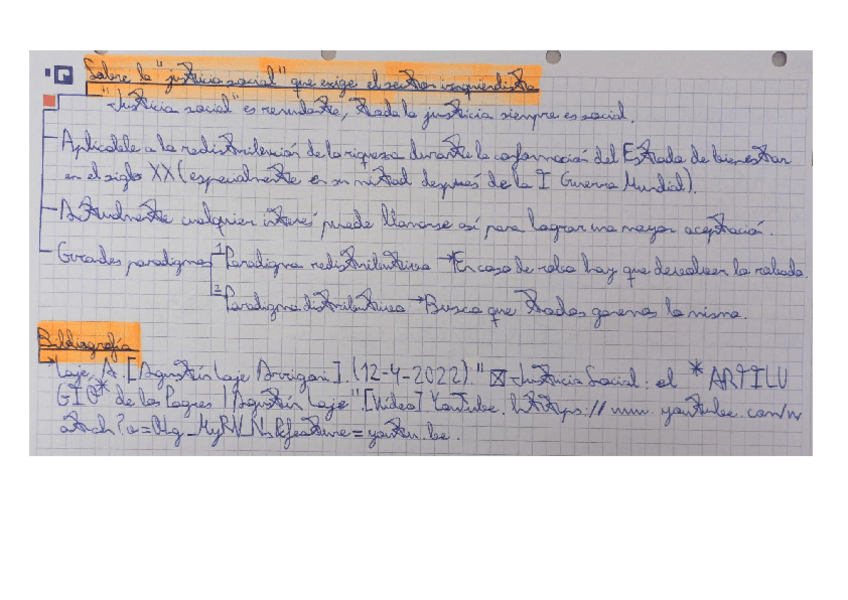 Sobre la "justicia social" que exige el sector izquierdista
"Justicia social" es redundante, toda la justicia siempre es social.
Aplicable a la redistribución de la riqueza durante la conformación del Estado de bienestar
en el siglo XX (especialmente en su mitad después de la I Guerra Mundial).
Actualmente cualquier interés puede llamarse así para lograr una mayor aceptación.
Grandes paradigmas
1 Paradigma redistributivo → En caso de robo hay que devolver lo robado.
2 Paradigma distributivo → Busca que todos ganemos lo mismo.
Bibliografía
→ Laje, A. [Agustín Laje Arrigoni]. (12-4-2022). " Justicia Social: el *ARTILU
GIO* de los Progres | Agustín Laje". [Vídeo] YouTube. https://www.youtube.com/w
atch?v=